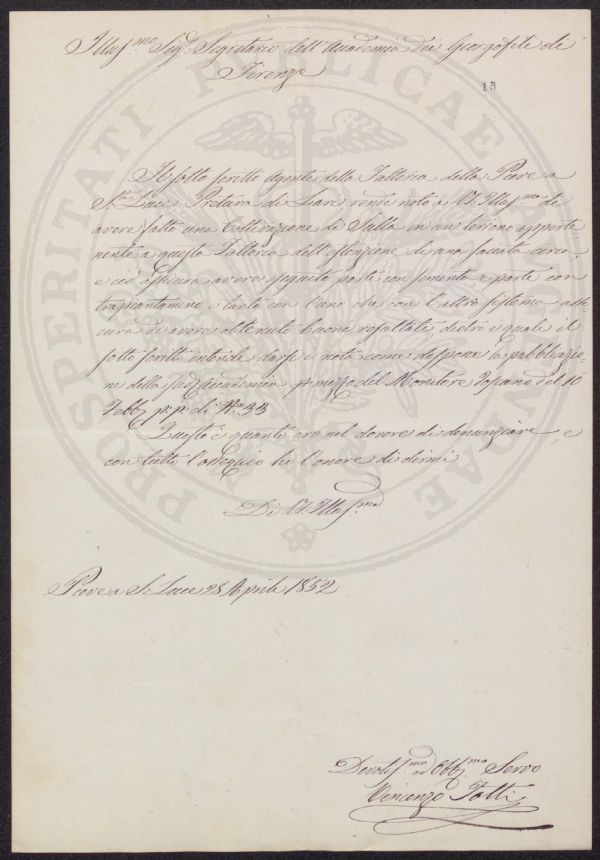 Illus.mo Sig. Segretario dell'Accademia dei Georgofili di
Firenze
15
Il sotto scritto Agente della Fattoria della Pieve a
S.ta Luce Pretura di Lari rende noto a VS. Illus.ma di
avere fatto una Coltivazione di Sulla in un terreno apparte
nente a questa Fattoria dell'estenzione di una saccata circa,
e ciò assicura avere eseguito parte con sementa e parte con
trapiantamene e tanto con l'uno che con l'altro sistema assi
cura di avere ottenuto buone resultati dietro i quali il
sotto scritto intende darsi in nota come dispone la pubblicazio
ne della sud. Accademia p. mezzo del Monitore Toscano del 10
Febb. p.p. di N.o 33
Questo è quanto ero nel dovere di denunziare, e
con tutto l'ossequio ho l'onore di dirmi
Di VS. Illus.ma
Pieve a S. Luce 28 Aprile 1852
Devotis.mo ed Obb.mo Servo
Vincenzo Totti
PROSPERITATI PUBLICAE AUGENDAE